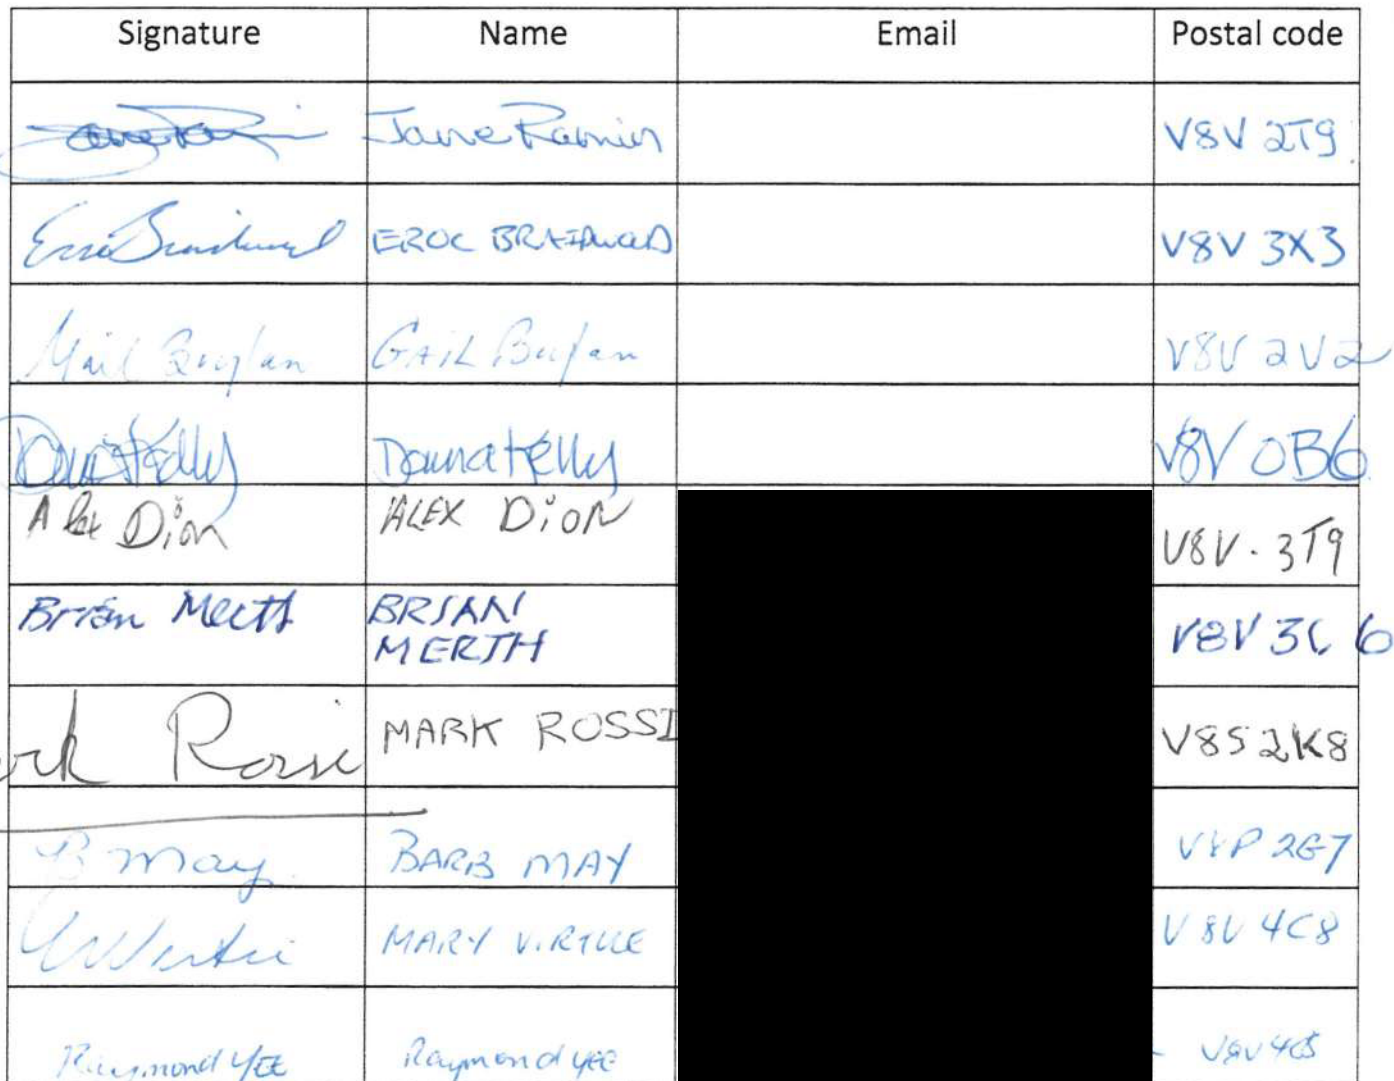 Signature Name Email Postal code
Jane V8V 2T9
EROC BRAIDWOOD V8V 3X3
Gail GAIL V8V 2V2
Donna Kelly Donna Kelly V8V 0B6
Alex Dion ALEX DiON V8V. 3T9
Brian Merth BRIAN
MERTH V8V 3C6
rk Rossi MARK ROSSI V8S 2K8
B May BARB MAY V8P 2G7
MARY VIRTUE V8V 4C8
Raymond YEE Raymond YEE V8V 4C5